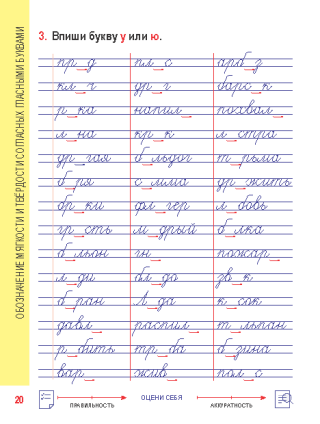 3. Впиши букву у или ю.
пр_д пл_с арб_з
кл_ч др_г барс_к
р_ка напил_ похвал_
л_на кр_к л_стра
др_гая б_льдог т_рьма
б_ря с_мма др_жить
бр_ки фл_гер л_бовь
гр_сть м_дрый б_лка
б_льон гн_ пожар_
л_ди бл_до зв_к
б_ран Л_да к_сок
давл_ распил_ т_льпан
р_бить тр_ба б_зина
вар_ жив_ пол_с
ОБОЗНАЧЕНИЕ МЯГКОСТИ И ТВЁРДОСТИ СОГЛАСНЫХ ГЛАСНЫМИ БУКВАМИ
20
ПРАВИЛЬНОСТЬ ОЦЕНИ СЕБЯ АККУРАТНОСТЬ